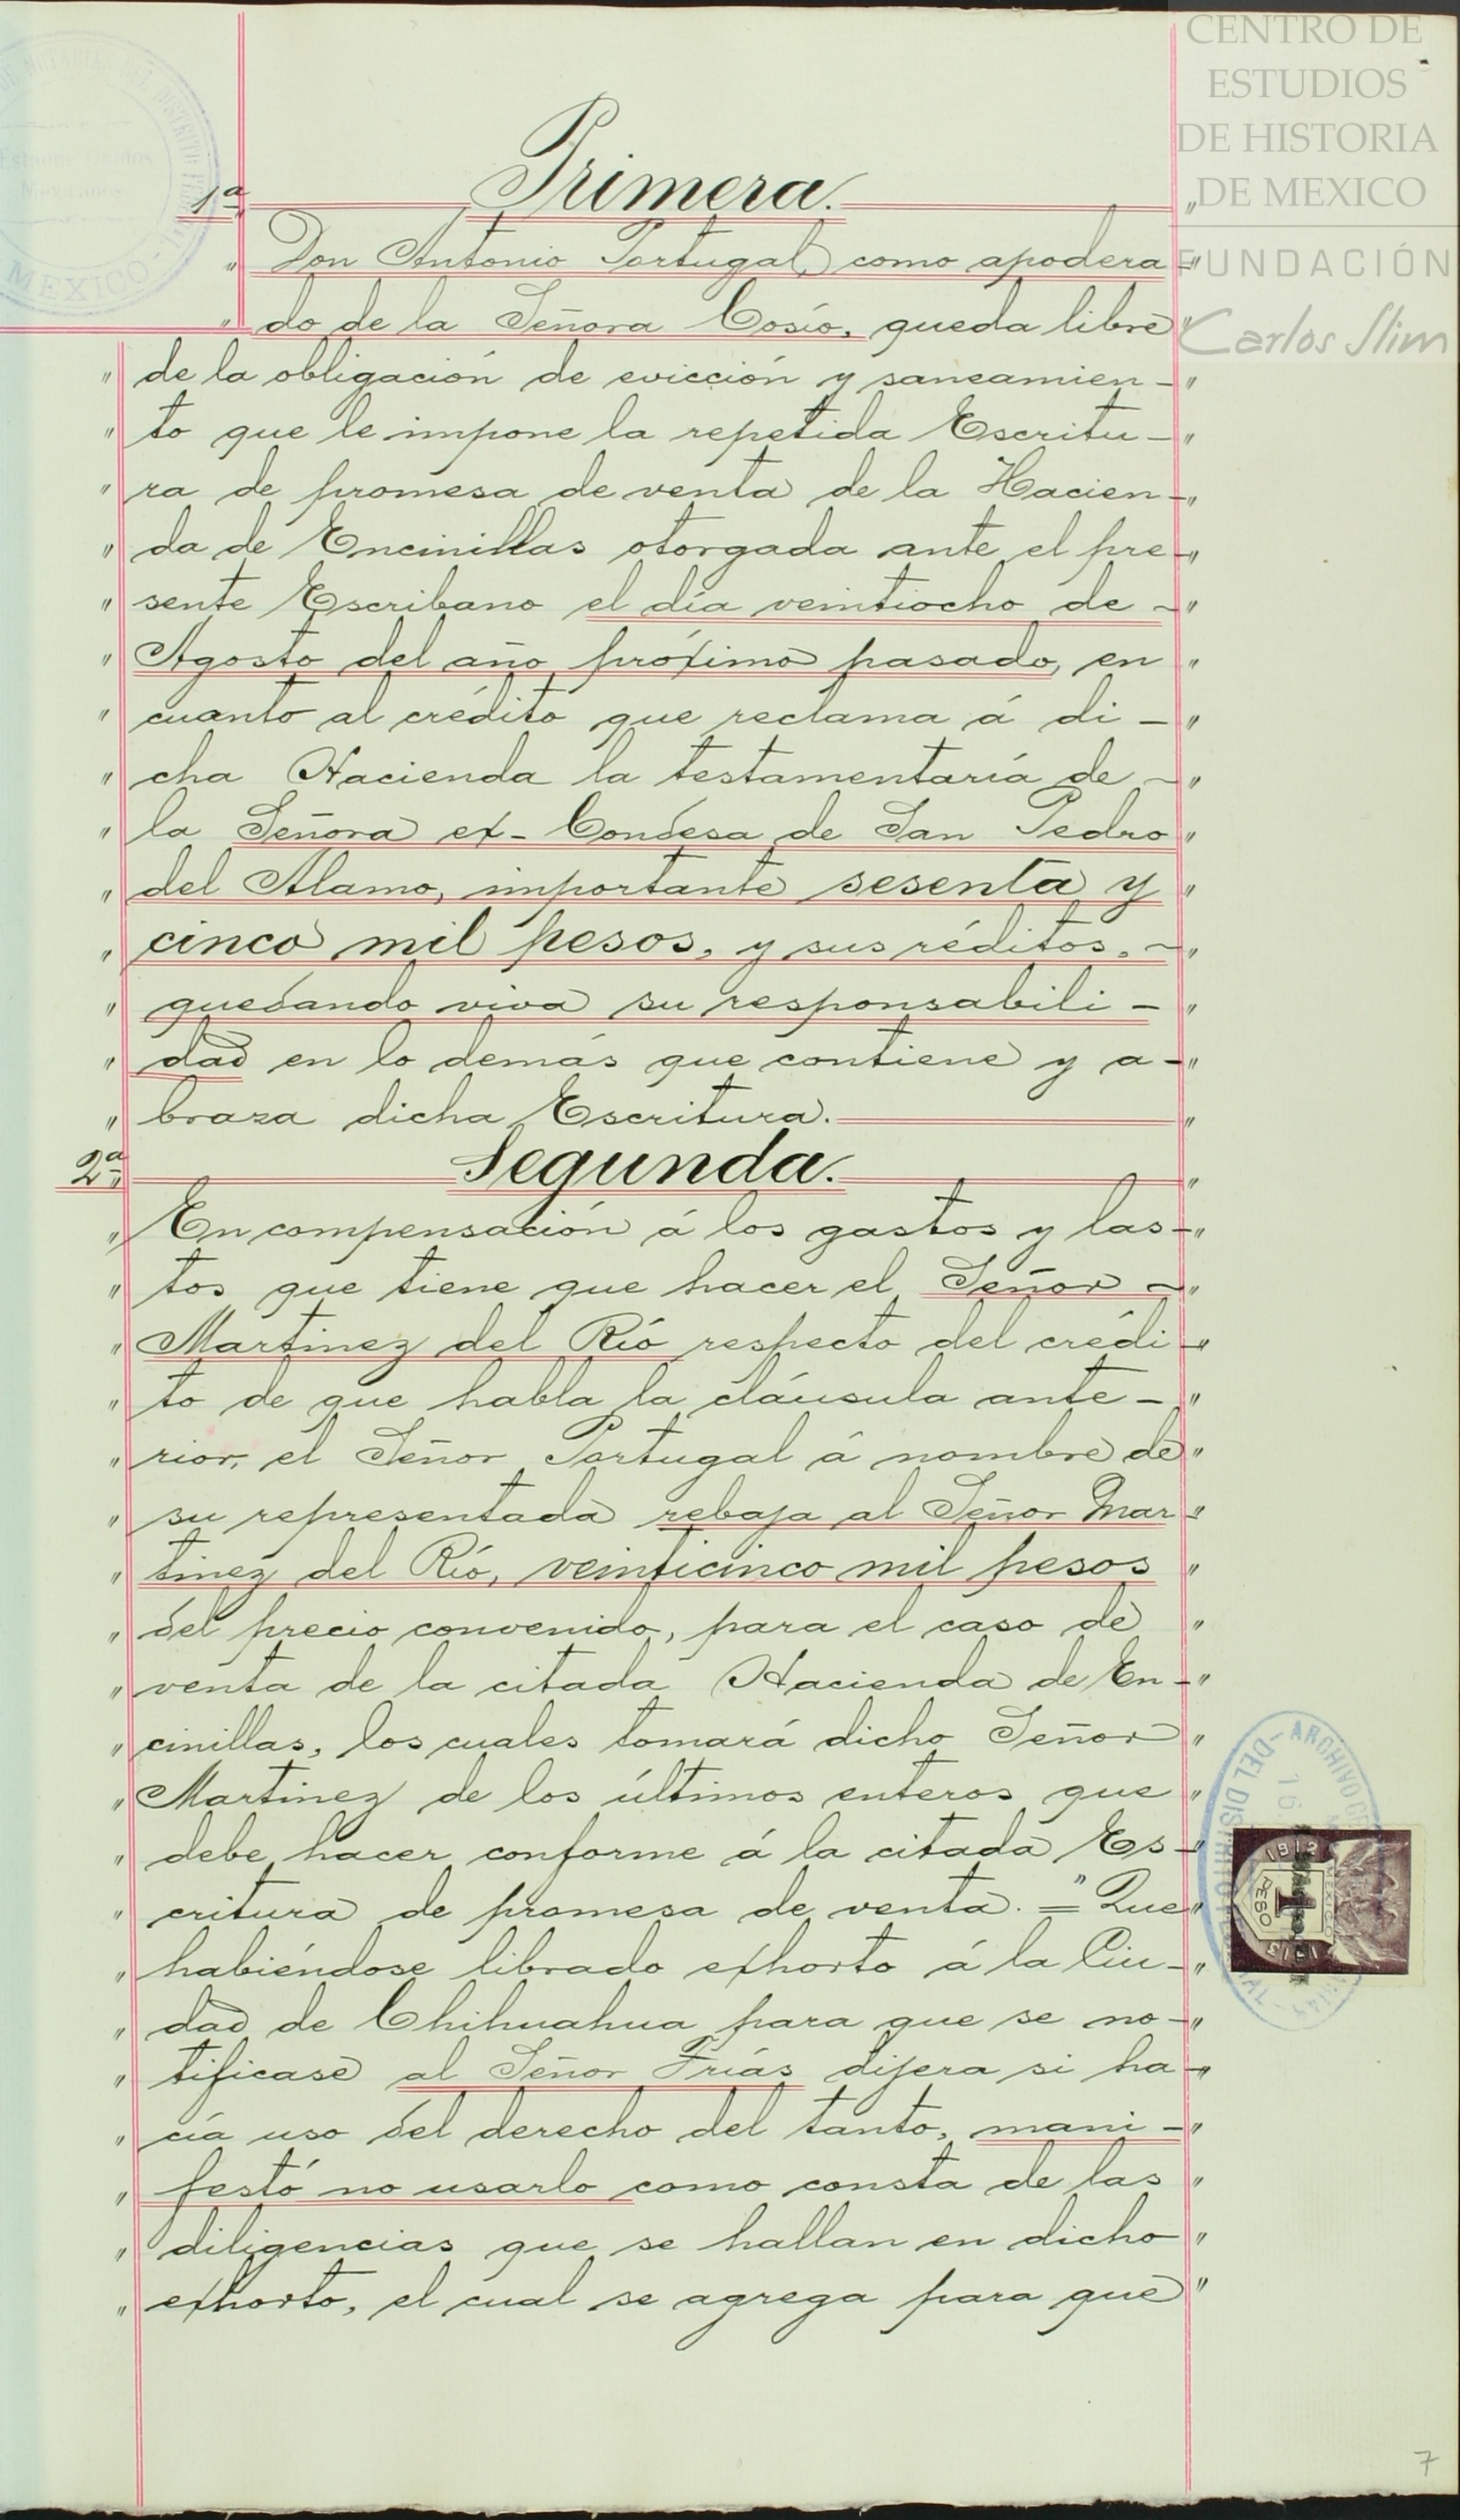 CENTRO DE
ESTUDIOS
DE HISTORIA
DE MEXICO
FUNDACIÓN
Carlos Slim
1ª Primera.
" Don Antonio Portugal, como apodera="
" do de la Señora Cosío, queda libre "
" de la obligación de evicción y saneamien- "
" to que le impone la repetida Escritu- "
" ra de promesa de venta de la Hacien- "
" da de Encinillas otorgada ante el pre- "
" sente Escribano el día veintiocho de - "
" Agosto del año próximo pasado, en "
" cuanto al crédito que reclama á di- "
" cha Hacienda la testamentaría de - "
" la Señora ex-Condesa de San Pedro "
" del Alamo, importante sesenta y "
" cinco mil pesos, y sus réditos, - "
" quedando viva su responsabili- "
" dad en lo demás que contiene y a- "
" braza dicha Escritura. "
2ª Segunda. "
" En compensación á los gastos y las- "
" tos que tiene que hacer el Señor - "
" Martinez del Río respecto del crédi- "
" to de que habla la cláusula ante- "
" rior, el Señor Portugal á nombre de "
" su representada rebaja al Señor Mar- "
" tinez del Río, veinticinco mil pesos "
" del precio convenido, para el caso de "
" venta de la citada Hacienda de En- "
" cinillas, los cuales tomará dicho Señor "
" Martinez de los últimos enteros que "
" debe hacer conforme á la citada Es- "
" critura de promesa de venta. = "Que "
" habiéndose librado exhorto á la Ciu- "
" dad de Chihuahua para que se no- "
" tificase al Señor Frías dijera si ha- "
" cía uso del derecho del tanto, mani- "
" festó no usarlo como consta de las "
" diligencias que se hallan en dicho "
" exhorto, el cual se agrega para que "
1912
1
PESO
1913
MEXICO
7